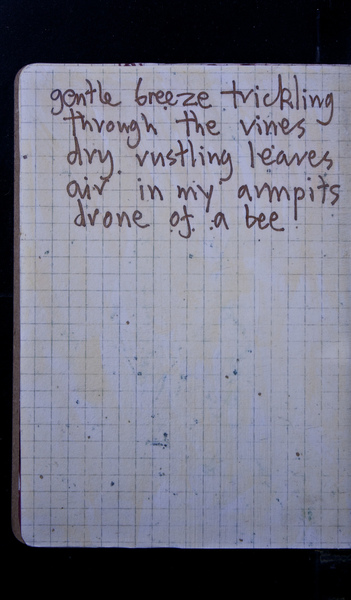 gentle breeze trickling
through the vines
dry rustling leaves
air in my armpits
drone of a bee